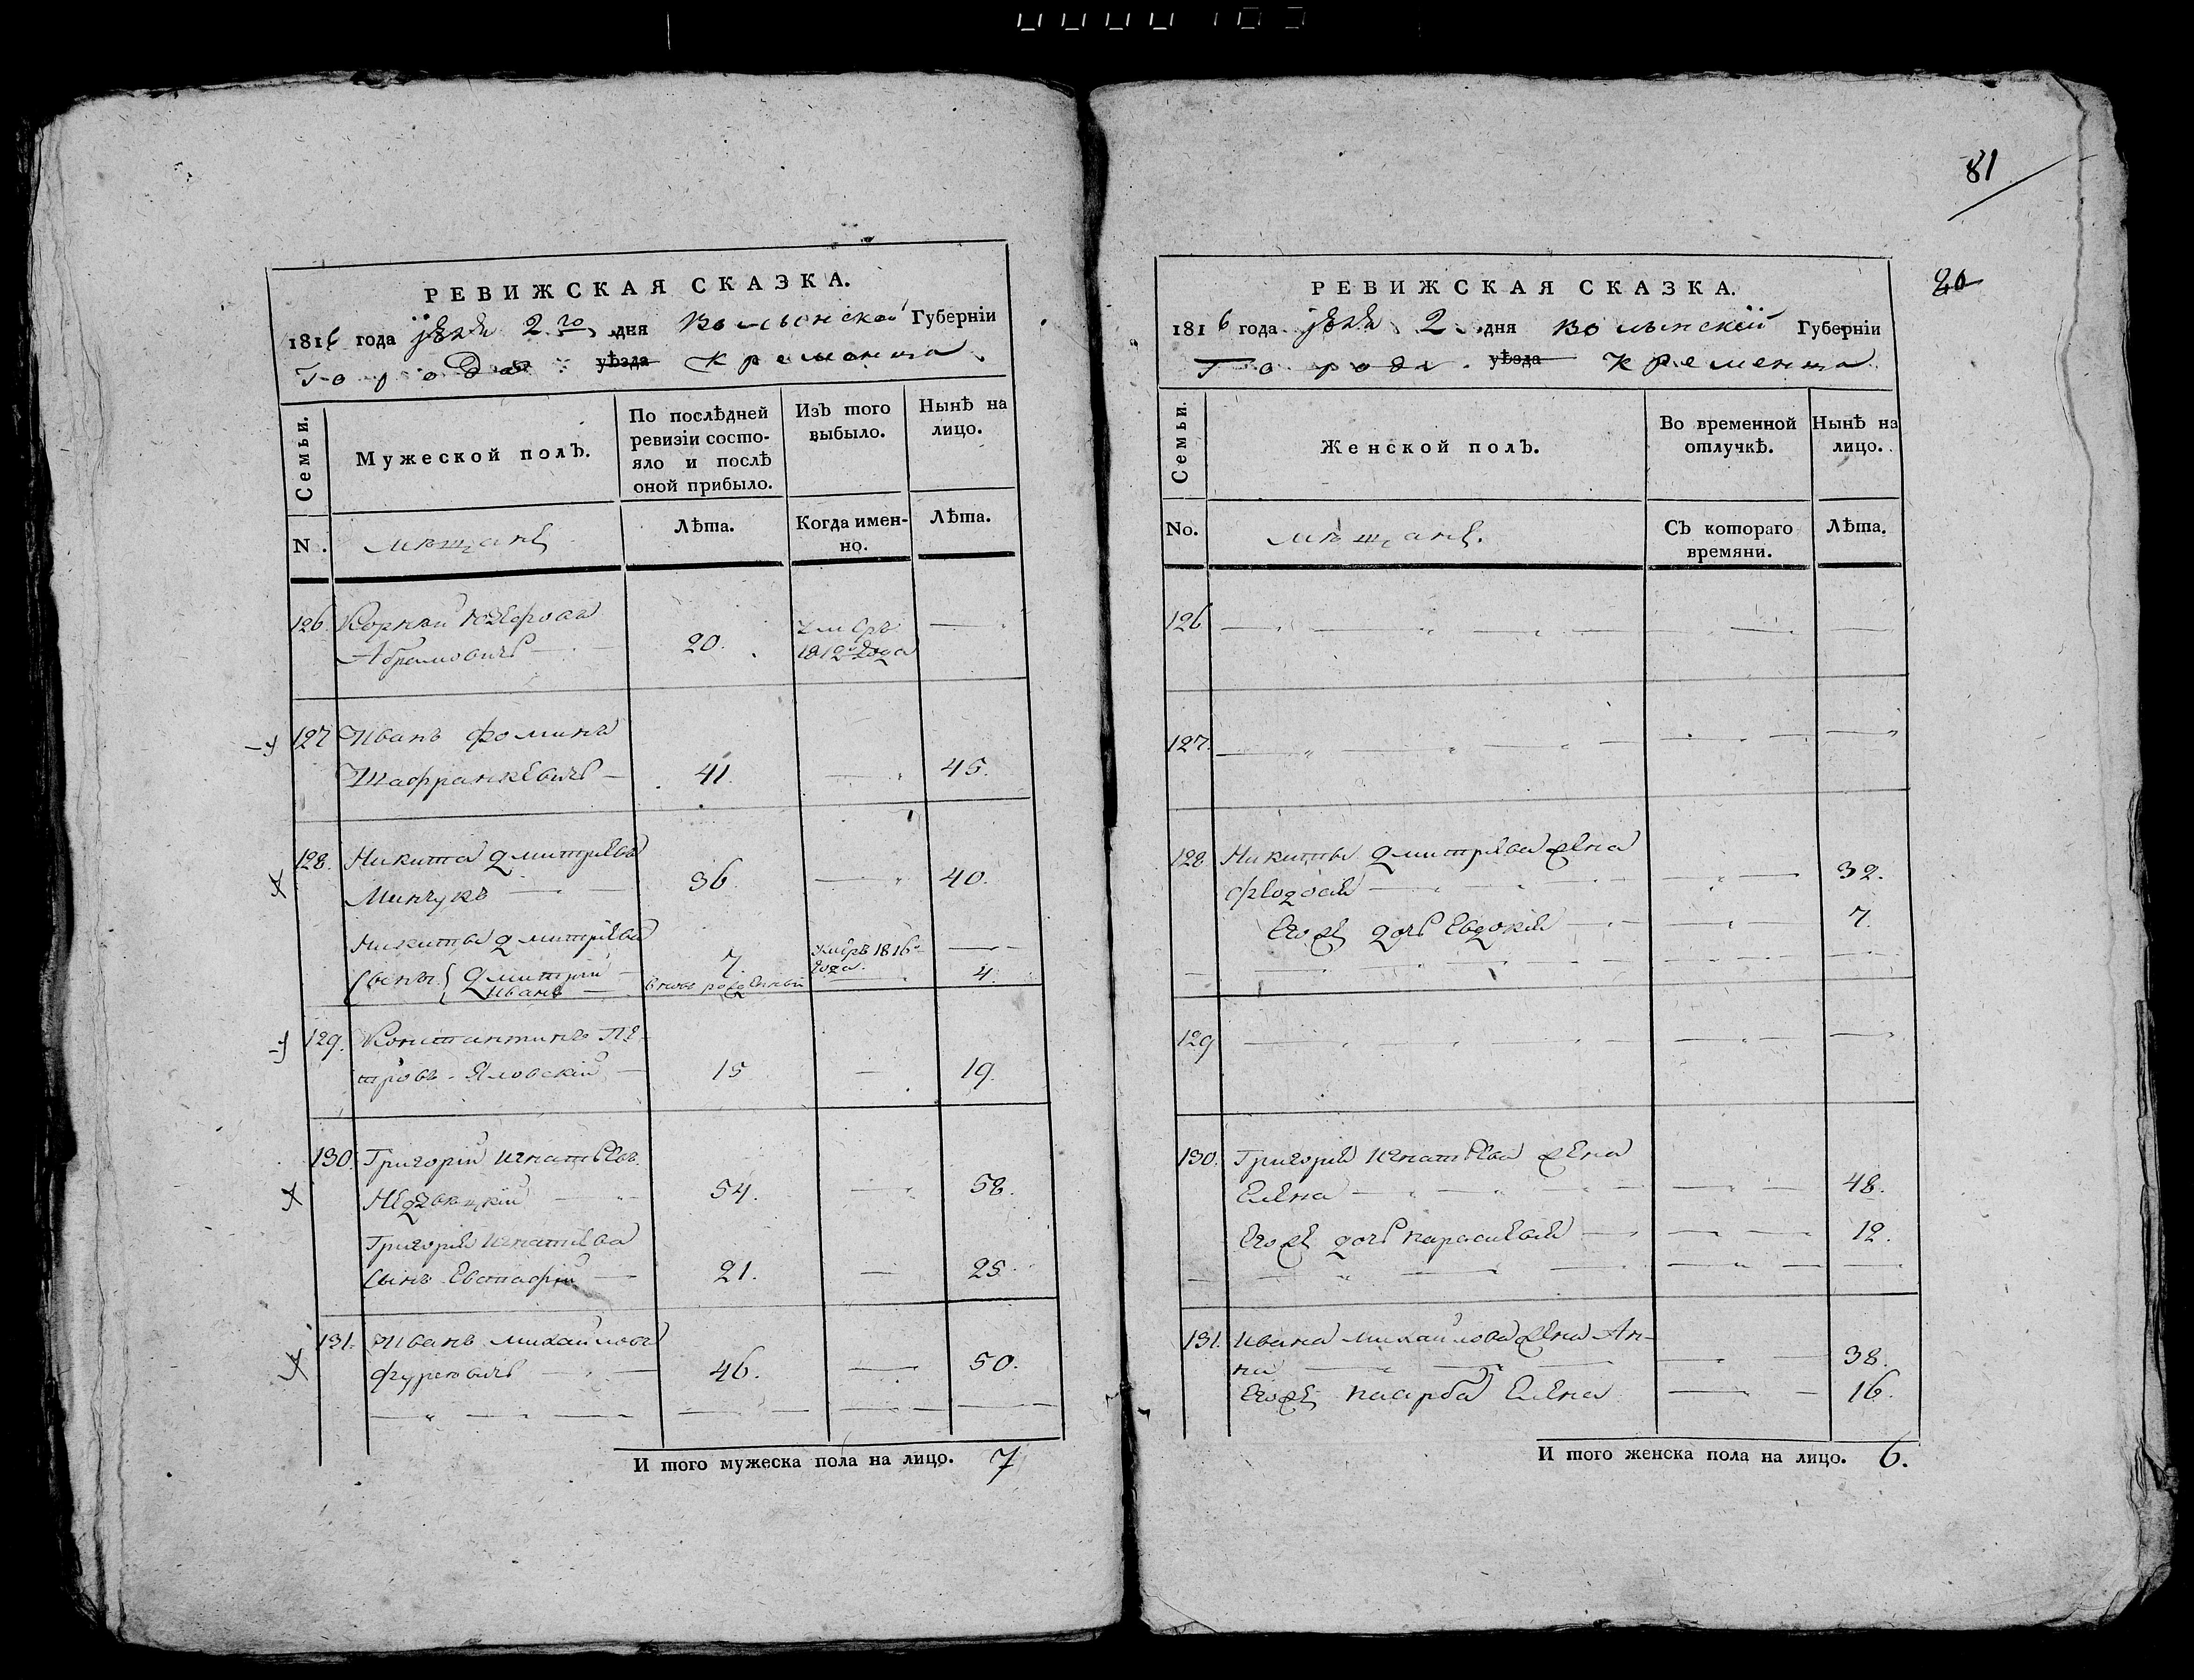 81
РЕВИЖСКАЯ СКАЗКА.
1816 года 2го дня Волынской Губерніи
Города уѣзда Кременца
Семьи.
Мужеской полъ.
По послѣдней ревизіи состояло и послѣ оной прибыло.
Изъ того выбыло.
Нынѣ на лицо.
N.
мѣщанѣ
Лѣта.
Когда именно.
Лѣта.
126. Корнѣй
Абрамовичъ 20. умеръ 1812 года
127 Иванъ Фоминъ
Шафранкевичъ 41. 45.
128. Никита Дмитріевъ
Минчукъ 36. 40.
Никиты Дмитріева
сыны { Дмитрій 7. умеръ 1816 года
Иванъ вновь рожденный 4.
129. Константинъ Пе-
тровъ Яловскій 15 19.
130. Григорій Игнатьевъ
Недзвецкій 54. 58.
Григорія Игнатіева
сынъ Евстафій 21. 25.
131. Иванъ Михайловъ
46. 50.
И того мужеска пола на лицо. 7
20
РЕВИЖСКАЯ СКАЗКА.
1816 года 2 дня Волынской Губерніи
Города уѣзда Кременца
Семьи.
Женской полъ.
Во временной отлучкѣ.
Нынѣ на лицо.
No.
мѣщанѣ.
Съ котораго времяни.
Лѣта.
126
127.
128 Никиты Дмитріева жена
Феодосія 32.
Его же дочь Евдокія 7.
129
130. Григорія Игнатьева жена
Елена 48.
Его же дочь Парасковія 12.
131. Ивана Михайлова жена Ан-
на 38.
Его же Елена 16.
И того женска пола на лицо. 6.